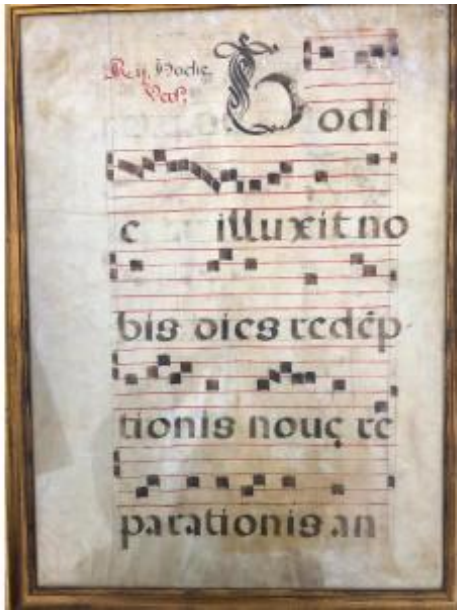 Hodie.
Hodi
e illuxit no
bis dies redēp
tionis nouę re
parationis an